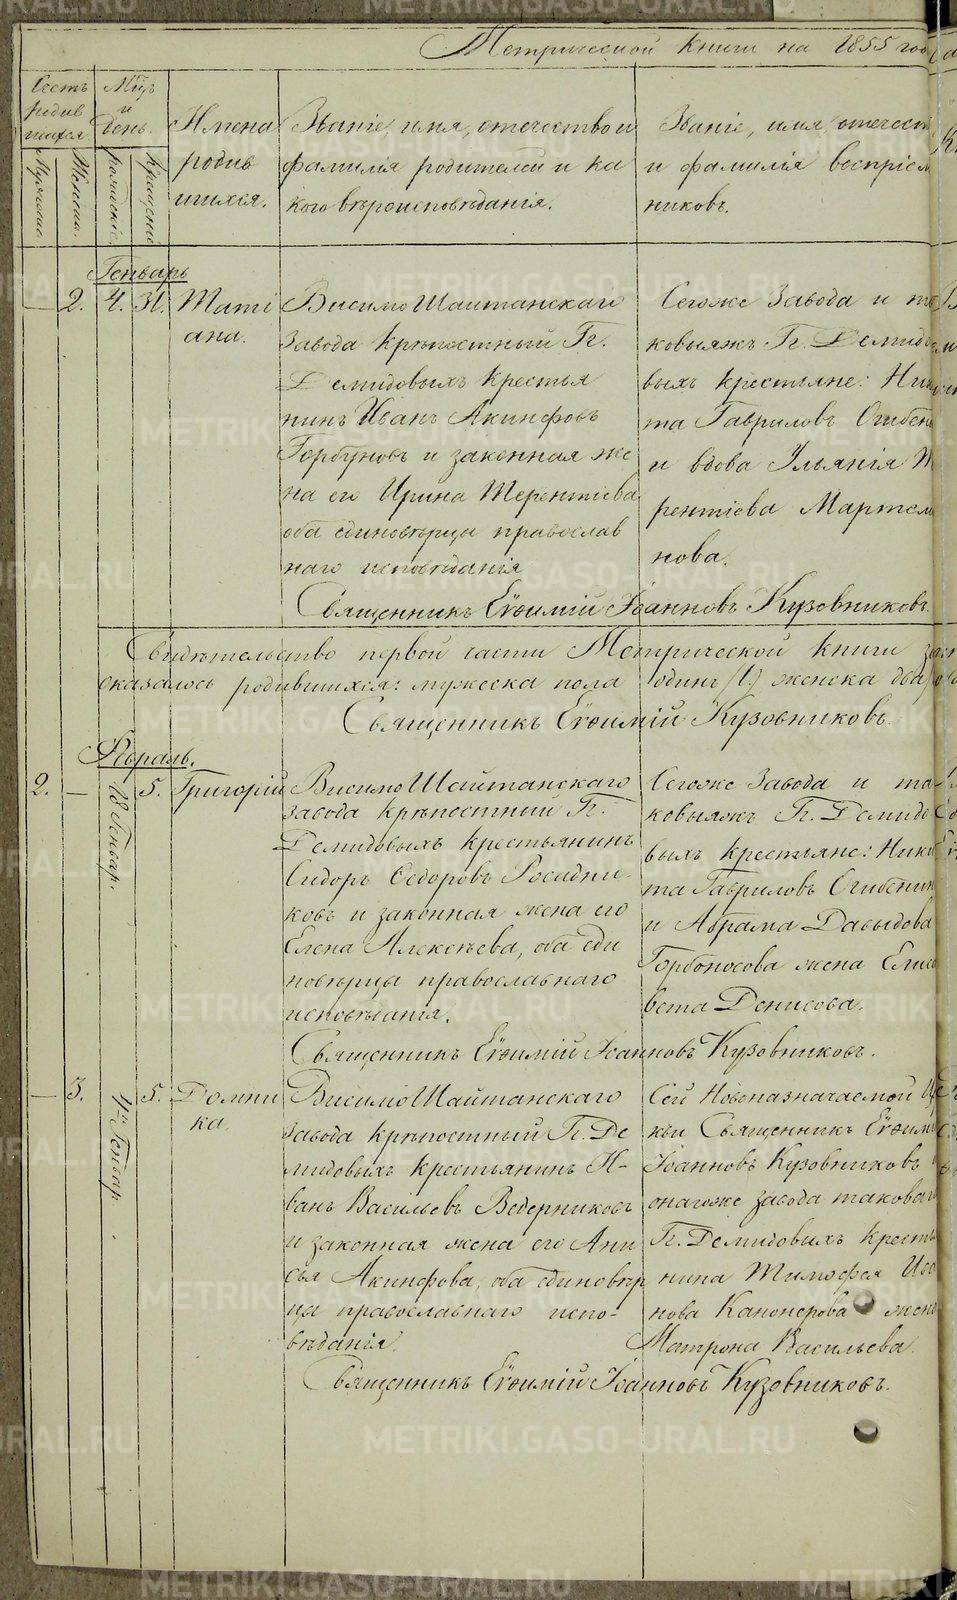 Метрической книги на 1855 год
Счетъ родив шихся
Мѣц. и День.
Имена родив шихся.
Званіе, имя, отечество и фамилія родителей и ка кого вѣроисповѣданія.
Званіе, имя, отечест и фамилія воспріем никовъ.
Мужеска.
Женска.
рожденія
крещенія
Генварь
— 2. 4. 31. Тати
ана.
Висимо Шайтанскаго
завода крѣпостный Гг.
Демидовыхъ крестья
нинъ Иванъ Акинфовъ
Горбуновъ и законная же
на его Ирина Терентіева
оба единовѣрца православ
наго исповѣданія
Сегоже Завода и та
ковыхжъ Гг. Демидо
выхъ крестьяне: Ники
та Гавриловъ Огибенин
и вдова Ульянія Т
рентіева Мартем
нова.
Священникъ Евѳимій Іоанновъ Кузовниковъ.
Свидѣтельство первой части Метрической книги
оказалось родившихся: мужеска пола одинъ (1.) женска два
Священникъ Евѳимій Кузовниковъ.
Февраль.
2. — 18 Генвар. 5. Григорій
Висимо Шайтанскаго
завода крѣпостный Гг.
Демидовыхъ крестьянинъ
Сидоръ Ѳедоровъ Росадни
ковъ и законная жена его
Елена Алексѣева, оба еди
новѣрцы православнаго
исповѣданія.
Сегоже Завода и та
ковыхжъ Гг. Демидо
выхъ крестьяне: Ники
та Гавриловъ Огибенин
и Абрама Давыдова
Горбоносова жена Елиса
вета Денисова.
Священникъ Евѳимій Іоанновъ Кузовниковъ.
— 3. 4го Генвар. 5. Домни
ка.
Висимо Шайтанскаго
завода крѣпостный Гг. Де
мидовыхъ крестьянинъ И-
ванъ Васильевъ Ведерниковъ
и законная жена его Ани
сья Акинфова, оба единовѣр
ца православнаго испо-
вѣданія.
Сей Новоназначаемой Це
кви Священникъ Евѳимі
Іоанновъ Кузовниковъ
онагоже завода таковаго
Гг. Демидовыхъ кресть
нина Тимофея
нова Канонерова жена
Матрона Васильева.
Священникъ Евѳимій Іоанновъ Кузовниковъ.
METRIKI.GASO-URAL.RU